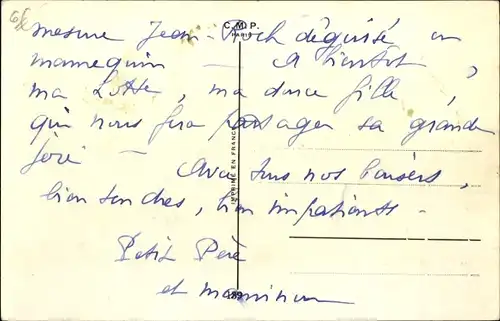 6/c
C.M.P.
PARIS
mesure Jean-Roch déguisé en
mannequin — A bientôt,
ma Lotte, ma douce fille,
qui nous fera partager sa grande
joie — Avec tous nos baisers,
bien tendres, bien impatients -
Petit Père
et maminou
IMPRIMÉ EN FRANCE
289